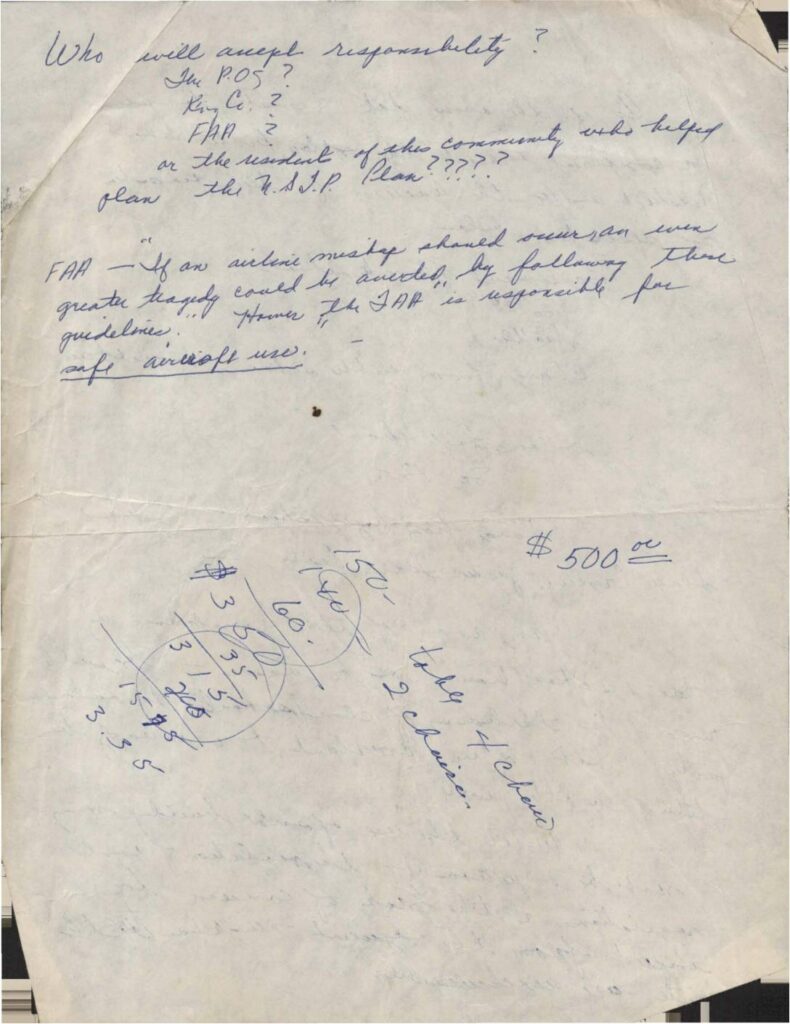 Who will accept responsibility?
The P.O.S?
King Co. ?
FAA ?
or the residents of this community who helped
plan the N.S.T.P. Plan?????
FAA — "If an airline mishap should occur, an even
greater tragedy could be averted, by following these
guidelines." However "the FAA" is responsible for
safe aircraft use. –
$ 500 00
150-
140
60.
$ 3 60
35
3 15
1575
3.35
table 4 chairs
2 chairs.